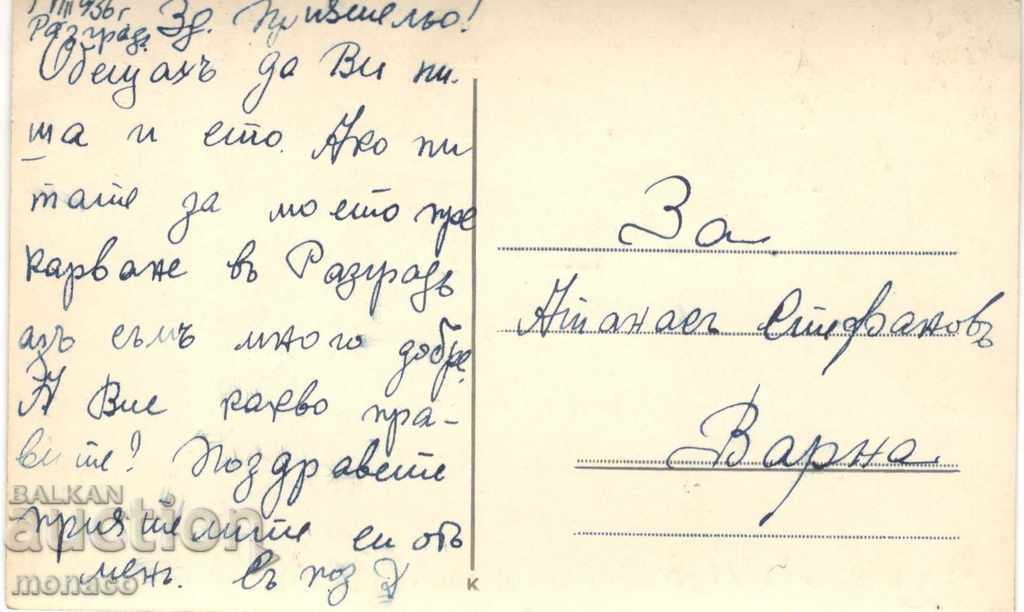 VIII 936 г.
Разградъ Зд. Приятельо!
Обещахъ да Ви пи-
ша и ето. Ако пи
тате за моето пре
карване въ Разградъ
азъ съмъ много добре.
А Вие какво пра-
вите? Поздравете
приятелите си отъ
менъ. Съ поз
За
Атанасъ Стефановъ
Варна.
К
BALKAN
auction
monaco